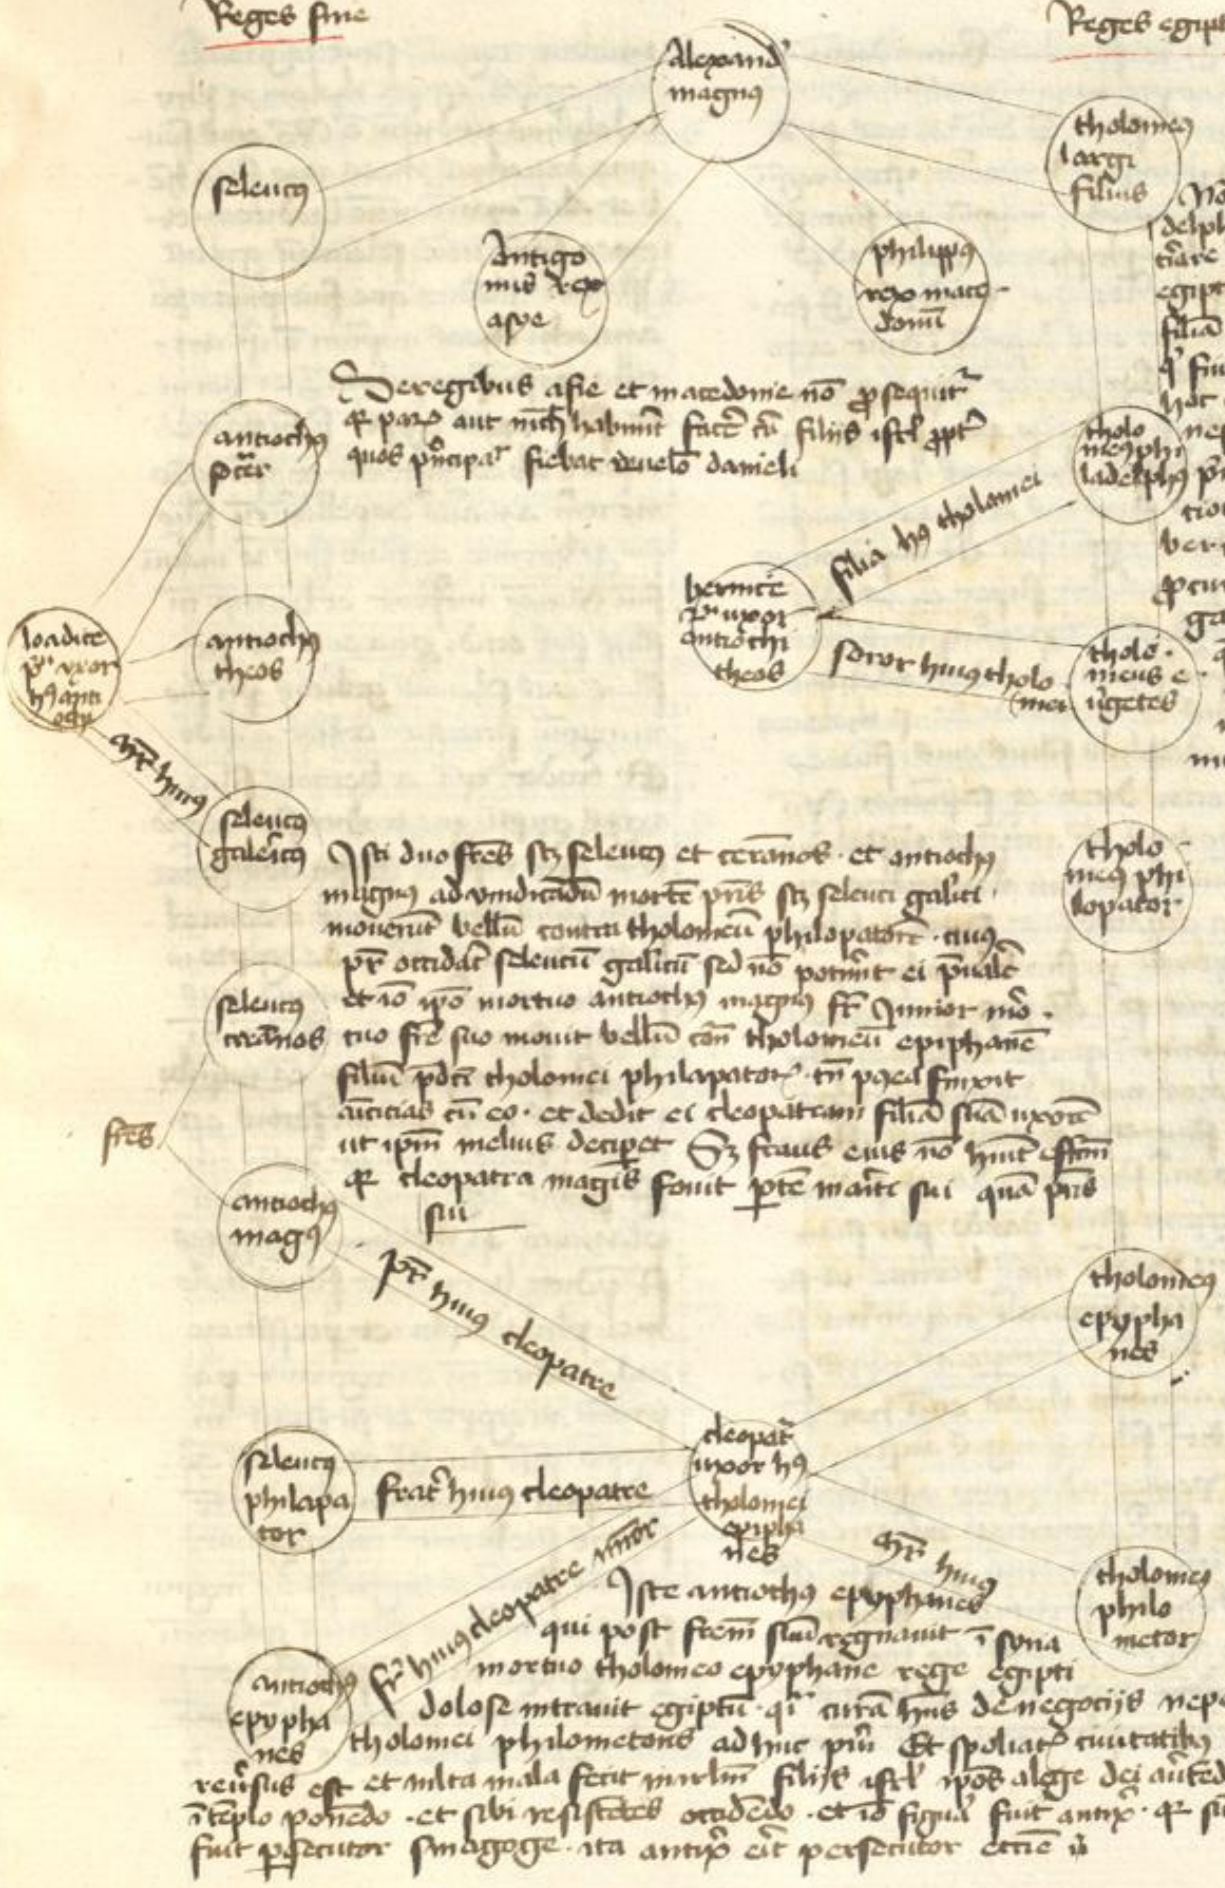 Reges sirie
Reges egipt
Alexand
magnus
tholomeus
largi
filius
seleucus
Antigo
nus rex
asye
philippus
rex mace
donum
De regibus asie et macedonie non prosequitur
quia parum aut nichil habuerunt facere cum filiis israel propter
quos principaliter fiebat revelatio danieli
antiochus
soter
tholo
meus phi
ladelphus
filia huius tholomei
bernice
2a uxor
antiochi
theos
soror huius tholo
mei
tholo
meus e
vgetes
laodice
pa uxor
huius anti
ochi
antiochus
theos
mater huius
seleucus
galericus
tholo
meus phi
lopator
Isti duo fratres scilicet seleucus et ceranos et antiochus
magnus ad vindicandum mortem patris scilicet seleuci galerici
moverunt bellum contra tholomeum philopatorem cuius
pater occiderat seleucum galericum sed non potuerunt ei prevalere
et ideo ipso mortuo antiochus magnus frater Junior mor
tuo fratre suo movit bellum contra tholomeum epiphanem
filium predicti tholomei philapatoris tamen postea finxit
amicicias cum eo et dedit ei cleopatram filiam suam uxorem
ut ipsum melius deciperet Sed fraus eius non habuit effectum
quia cleopatra magis fovit partem mariti sui quam patris
sui
seleucus
ceranos
fratres
antiochus
magnus
pater huius cleopatre
tholomeus
epypha
nes
cleopatra
uxor huius
tholomei
epipha
nes
seleucus
philapa
tor
frater huius cleopatre
frater huius cleopatre minor
mater huius
tholomeus
philo
metor
antiochus
epypha
nes
Iste antiochus epyphanes
qui post fratrem suum regnavit in syria
mortuo tholomeo epyphane rege egipti
dolose intravit egiptum quasi curam habens de negociis nepo
tholomei philometoris adhuc pueri Et spoliatis civitatibus
reversus est et multa mala fecit in filiis israel ipsos a lege dei
in templo ponendo et sibi resistentes occidendo et ideo figura fuit antichristi quia
fuit persecutor sinagoge ita antichristus erit persecutor ecclesie